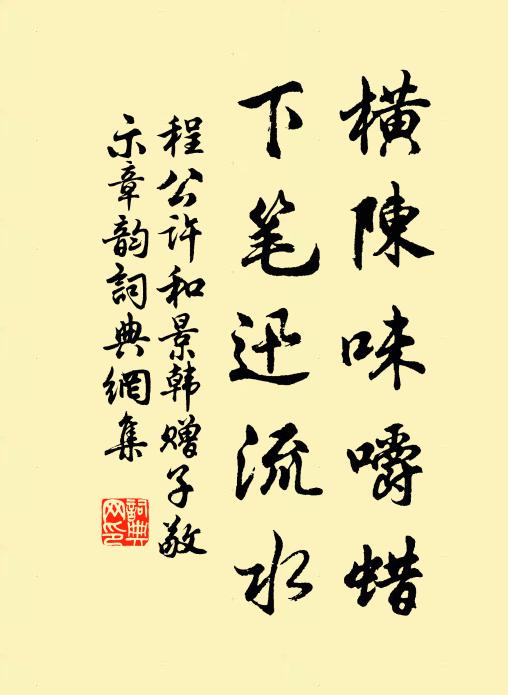 横陳味嚼蜡
下笔迅流水
程公许和景韩赠子敬
示章韵詞典網集
詞典
网印